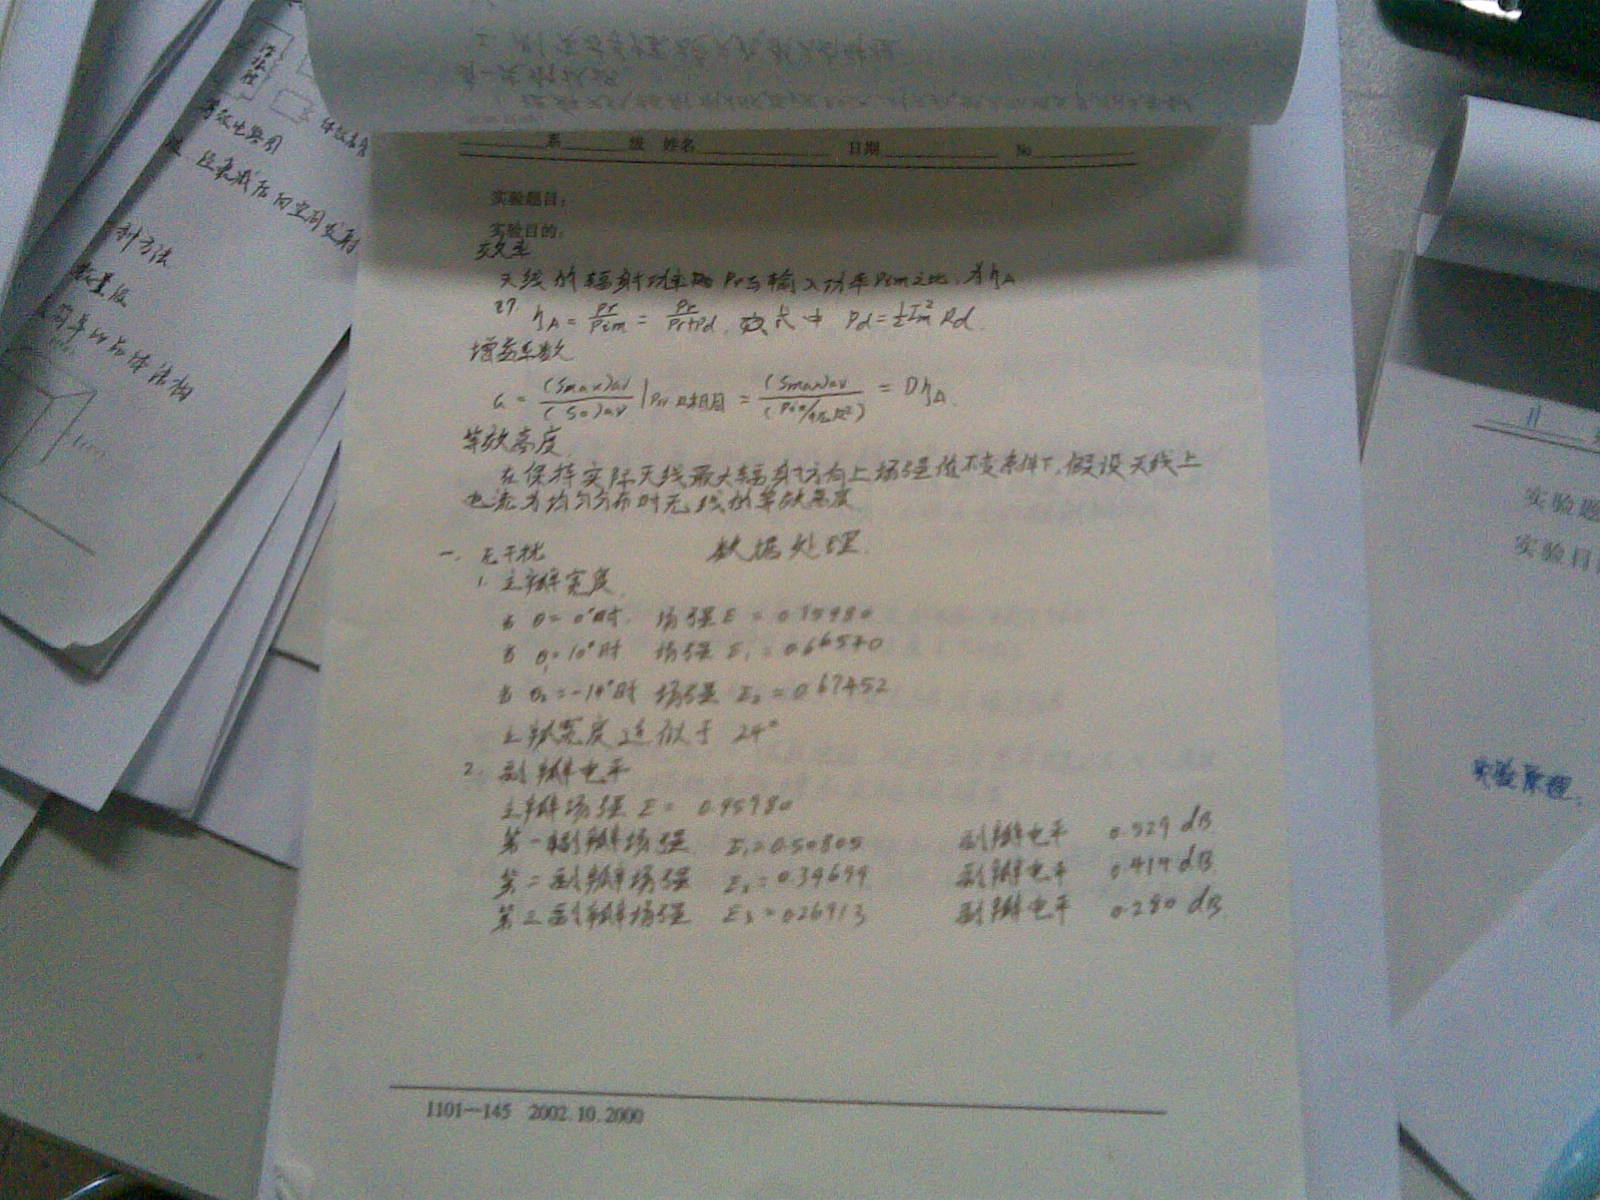 系 级 姓名 日期 No
实验题目:
实验目的:
效率
天线的辐射功率 Pr与输入功率Pim之比,为ηA
ηA = Pr/Pim = Pr/(Pr+Pd) 式中 Pd = ½Im²Rd
增益系数
G = (Smax)av/(S0)av | 相同 = (Smax)av/(Pin/4πR²) = DηA
等效高度
在保持实际天线最大辐射方向上场强值不变条件下,假设天线上
电流为均匀分布时天线的等效高度
数据处理
一、无干扰
1. 主瓣宽度
当 θ=0°时 场强E = 0.95980
当 θ₁=10°时 场强 E₁=0.66540
当 θ₂=-14°时 场强 E₂=0.67452
主瓣宽度近似于 24°
2. 副瓣电平
主瓣场强 E = 0.95980
第一副瓣场强 E₁=0.50805 副瓣电平 0.529 dB
第二副瓣场强 E₂=0.39699 副瓣电平 0.414 dB
第三副瓣场强 E₃=0.26913 副瓣电平 0.280 dB
1101—145 2002.10.2000
体效应管
等效电路图
经衰减后向空间发射
种方法
数量级
简单的晶体结构
11
实验题
实验目
实验原理: